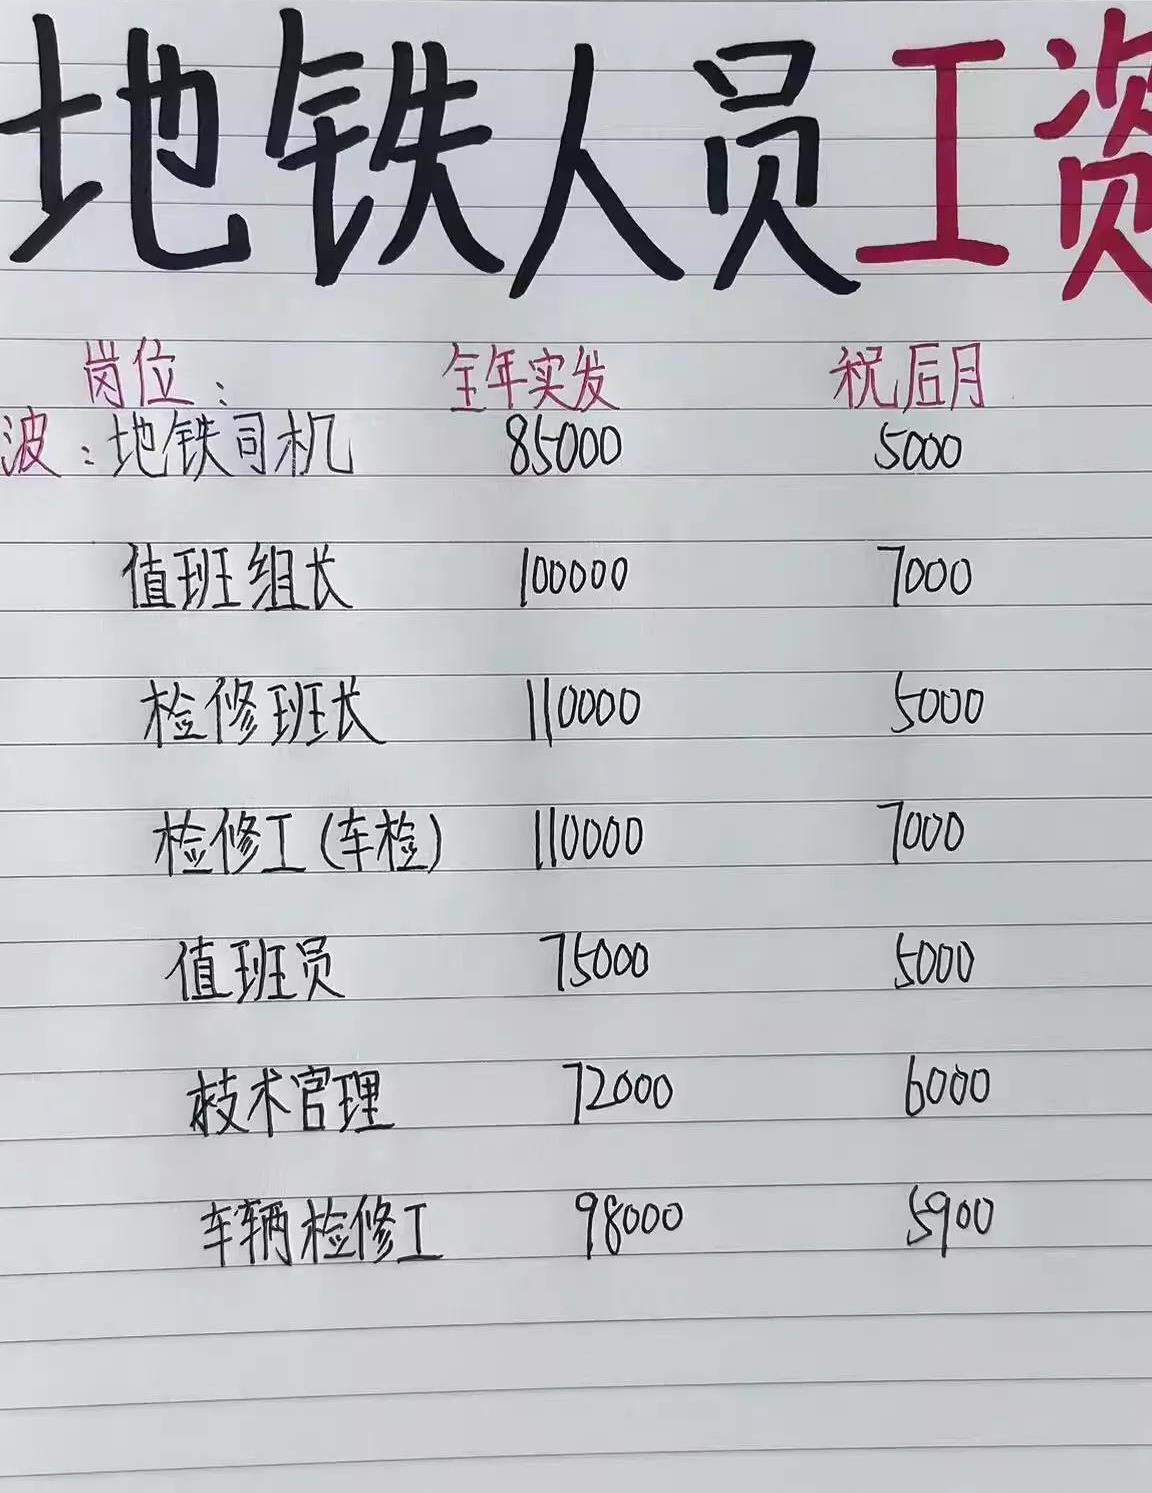 地铁人员工资
岗位： 全年实发 祝后月
波：地铁司机 85000 5000
值班组长 100000 7000
检修班长 110000 5000
检修工(车检) 110000 7000
值班员 75000 5000
技术官理 72000 6000
车辆检修工 98000 5900